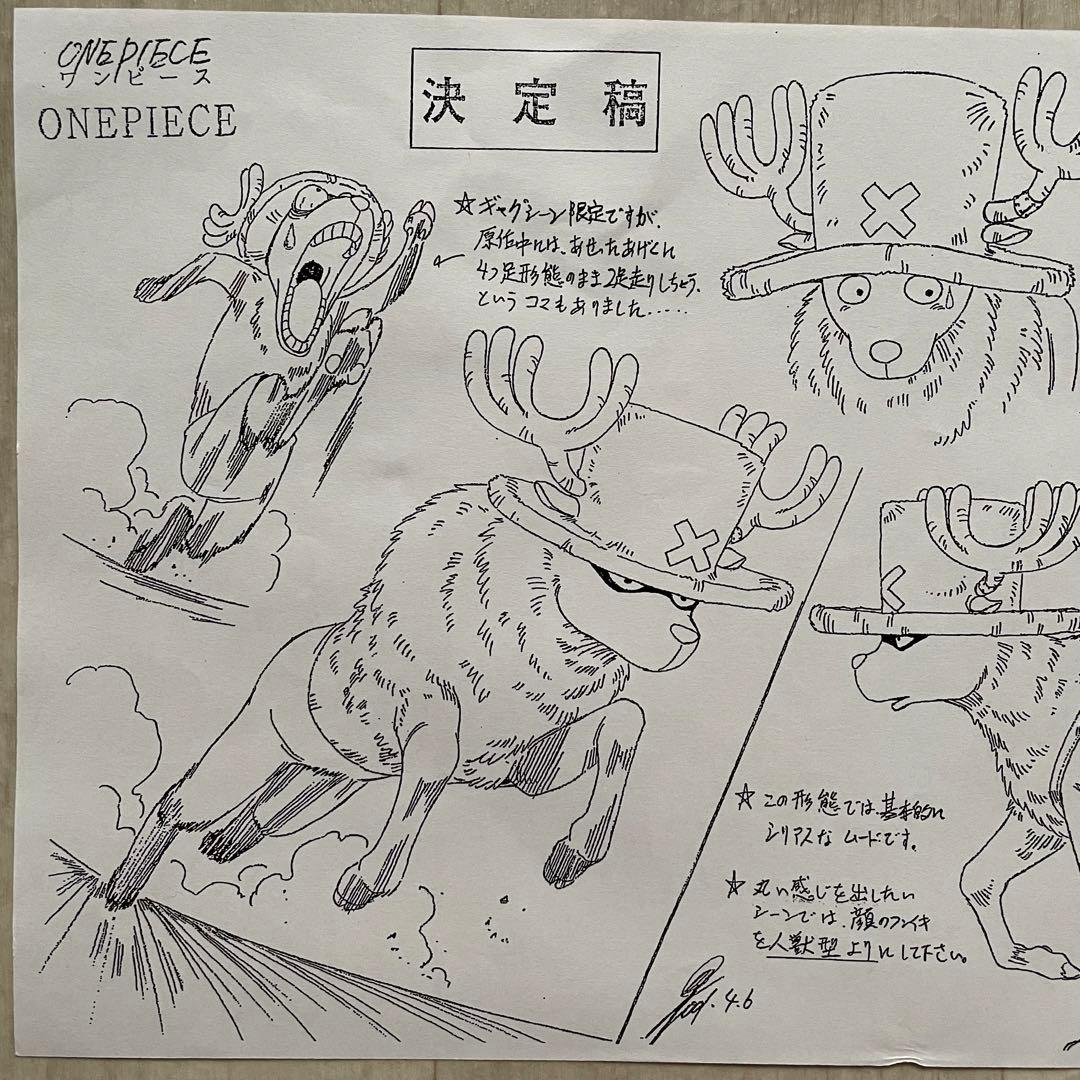 ONEPIECE
ワンピース
ONEPIECE
決定稿
☆ギャグシーン限定ですが、
原作中には、あせったあげくに
4つ足形態のまま2足走りしちゃう、
というコマもありました……
☆この形態では、基本的に
シリアスなムードです。
☆丸い感じを出したい
シーンでは、顔のフンイキ
を人獣型よりにして下さい。
4.6